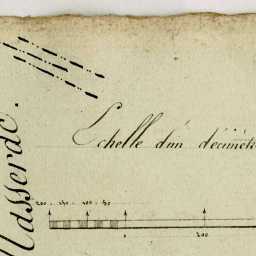 Masserac.
Echelle d'un décimèt
200 150 100 50
0 200